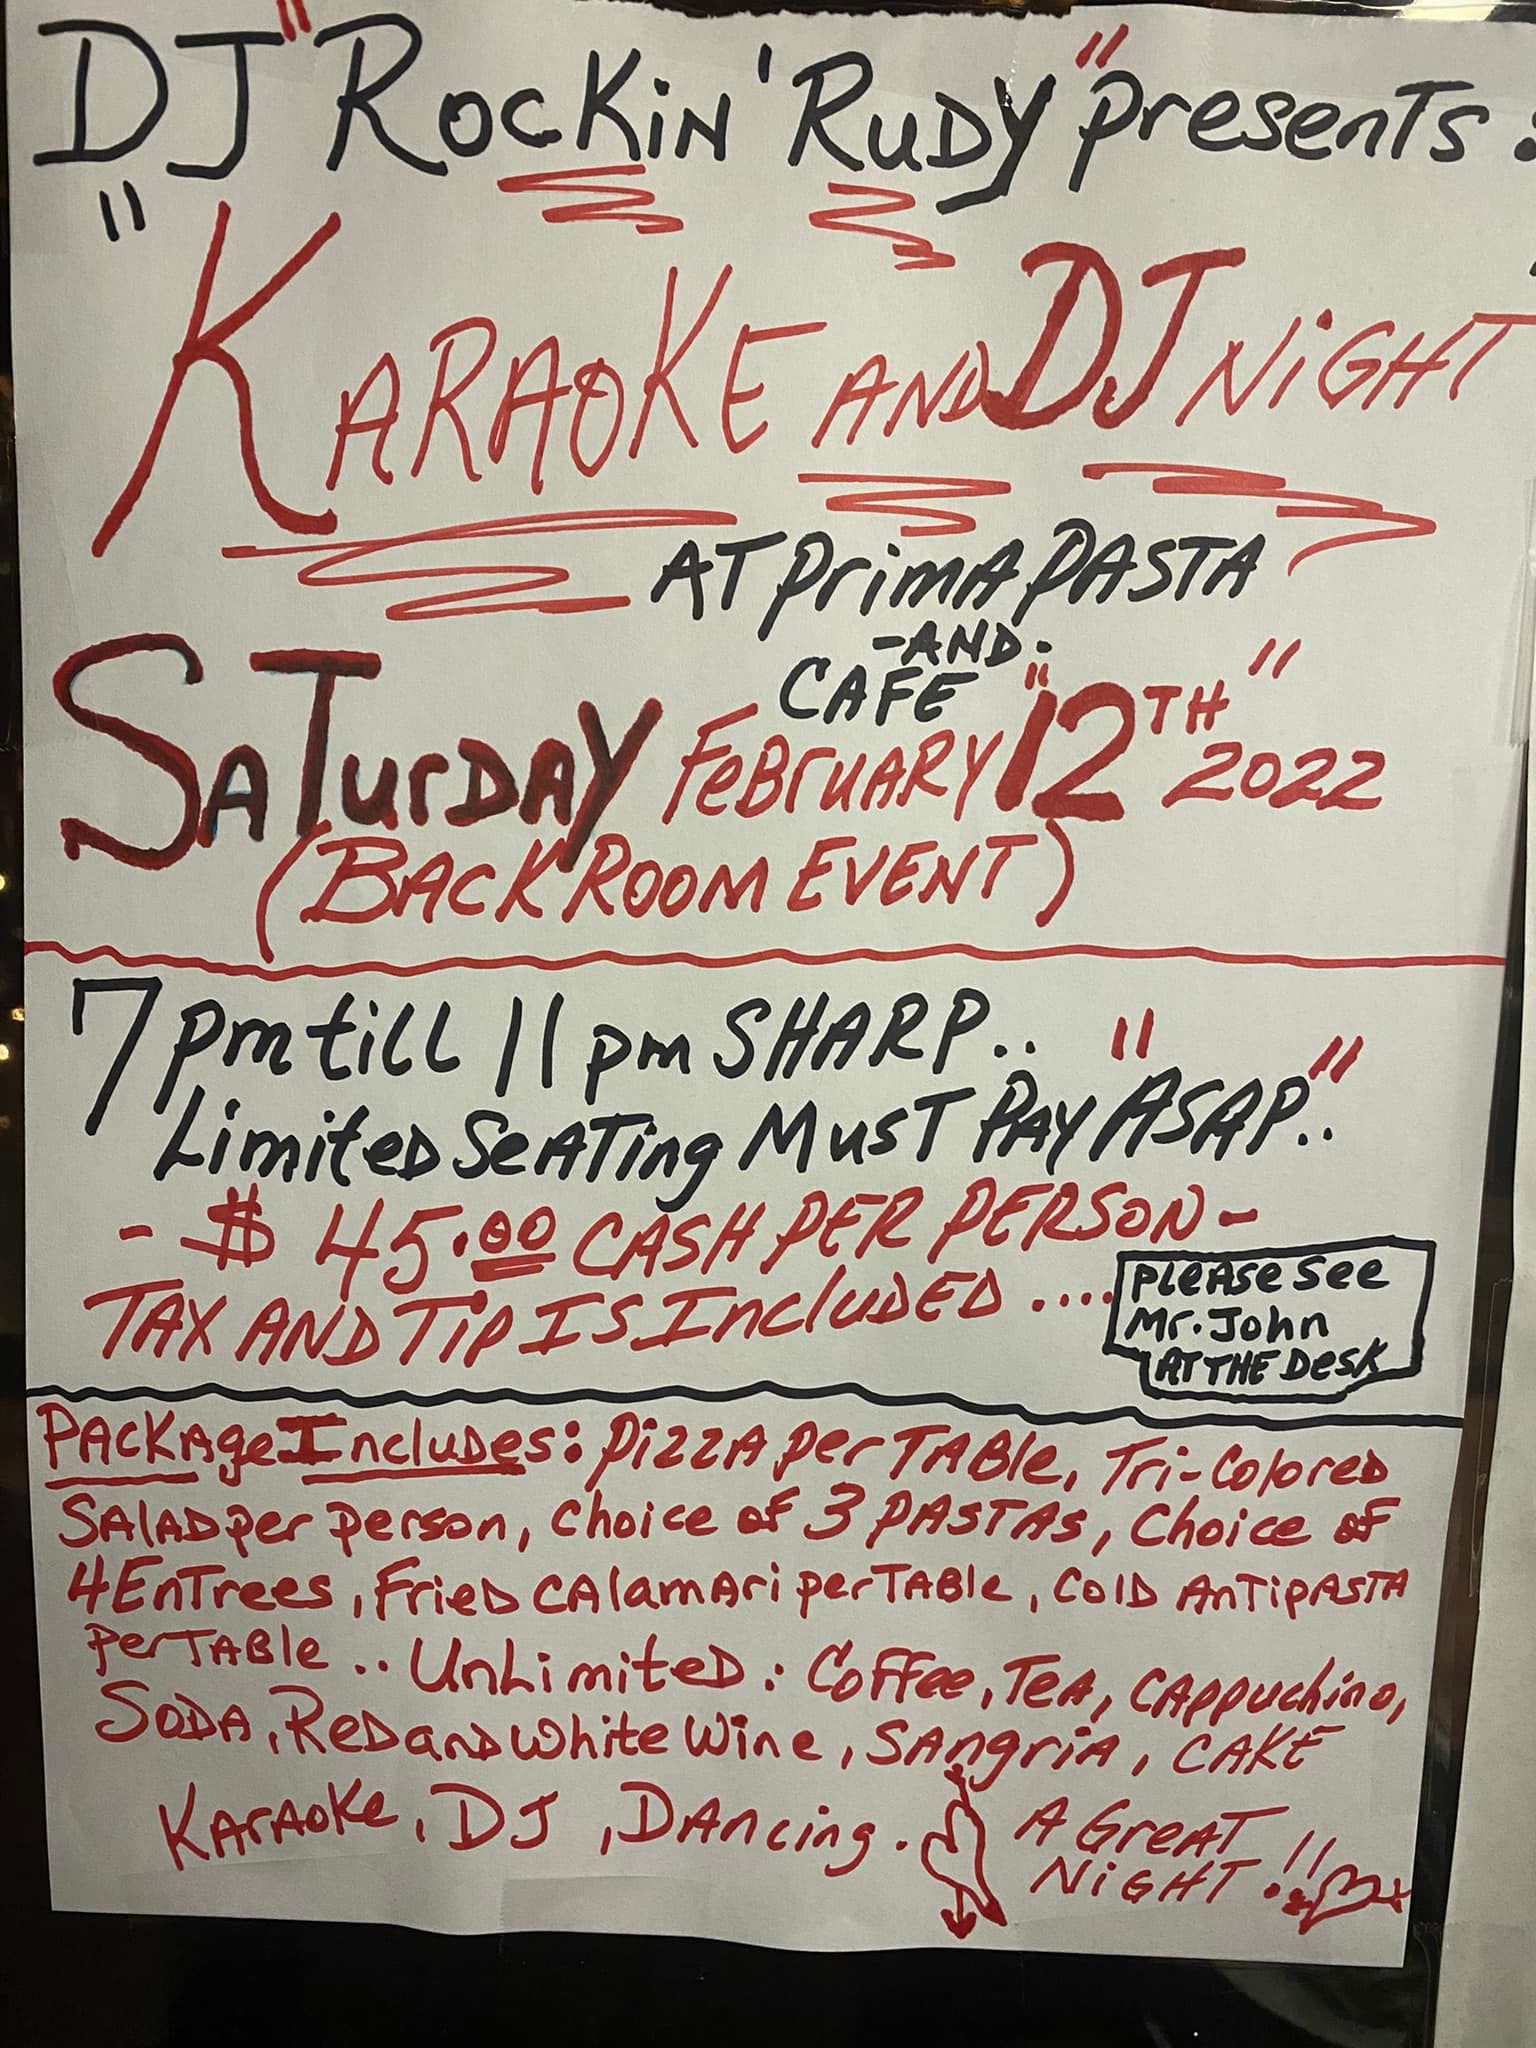 DJ "Rockin' Rudy" presents:
"Karaoke and DJ Night"
AT Prima PASTA
-AND-
CAFE
Saturday February "12TH" 2022
(Back Room Event)
7pm till 11pm SHARP..
Limited Seating Must Pay "ASAP"..
- $45.00 CASH PER PERSON -
TAX AND TIP IS Included....
Please see
Mr. John
AT THE Desk
Package Includes: Pizza per Table, Tri-Colored
Salad per person, Choice of 3 PASTAs, Choice of
4 Entrees, Fried Calamari per Table, Cold Antipasta
per Table.. Unlimited: Coffee, Tea, Cappuchino,
Soda, Red and White Wine, Sangria, CAKE
Karaoke, DJ, Dancing. A Great
Night!!